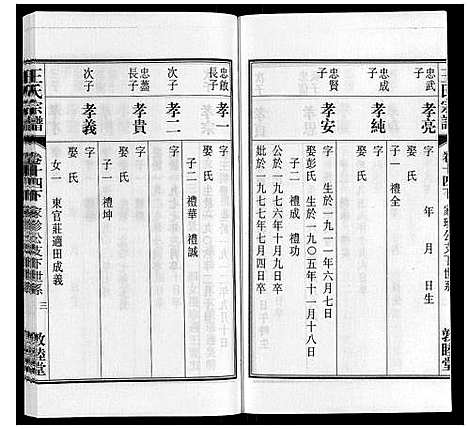 王氏宗譜
卷十四下
敦睦堂
忠武
子
孝亮
字 年 月 日生
娶 氏
忠成
子
孝純
字
娶 氏
子一 禮全
忠賢
子
孝安
字 生於一九一一年六月七日
娶彭氏 生於一九〇五年十一月十八日
子二 禮成 禮功
公於一九七六年十月九日卒
妣於一九七七年七月四日卒
忠啟
長子
孝一
字
娶 氏
子二 禮華 禮誠
次子
孝二
字
娶 氏
忠藎
長子
孝貴
字
娶 氏
子一 禮坤
次子
孝義
字
娶 氏
女一 東官莊適田成義
王氏宗譜
卷十四下
三
敦睦堂